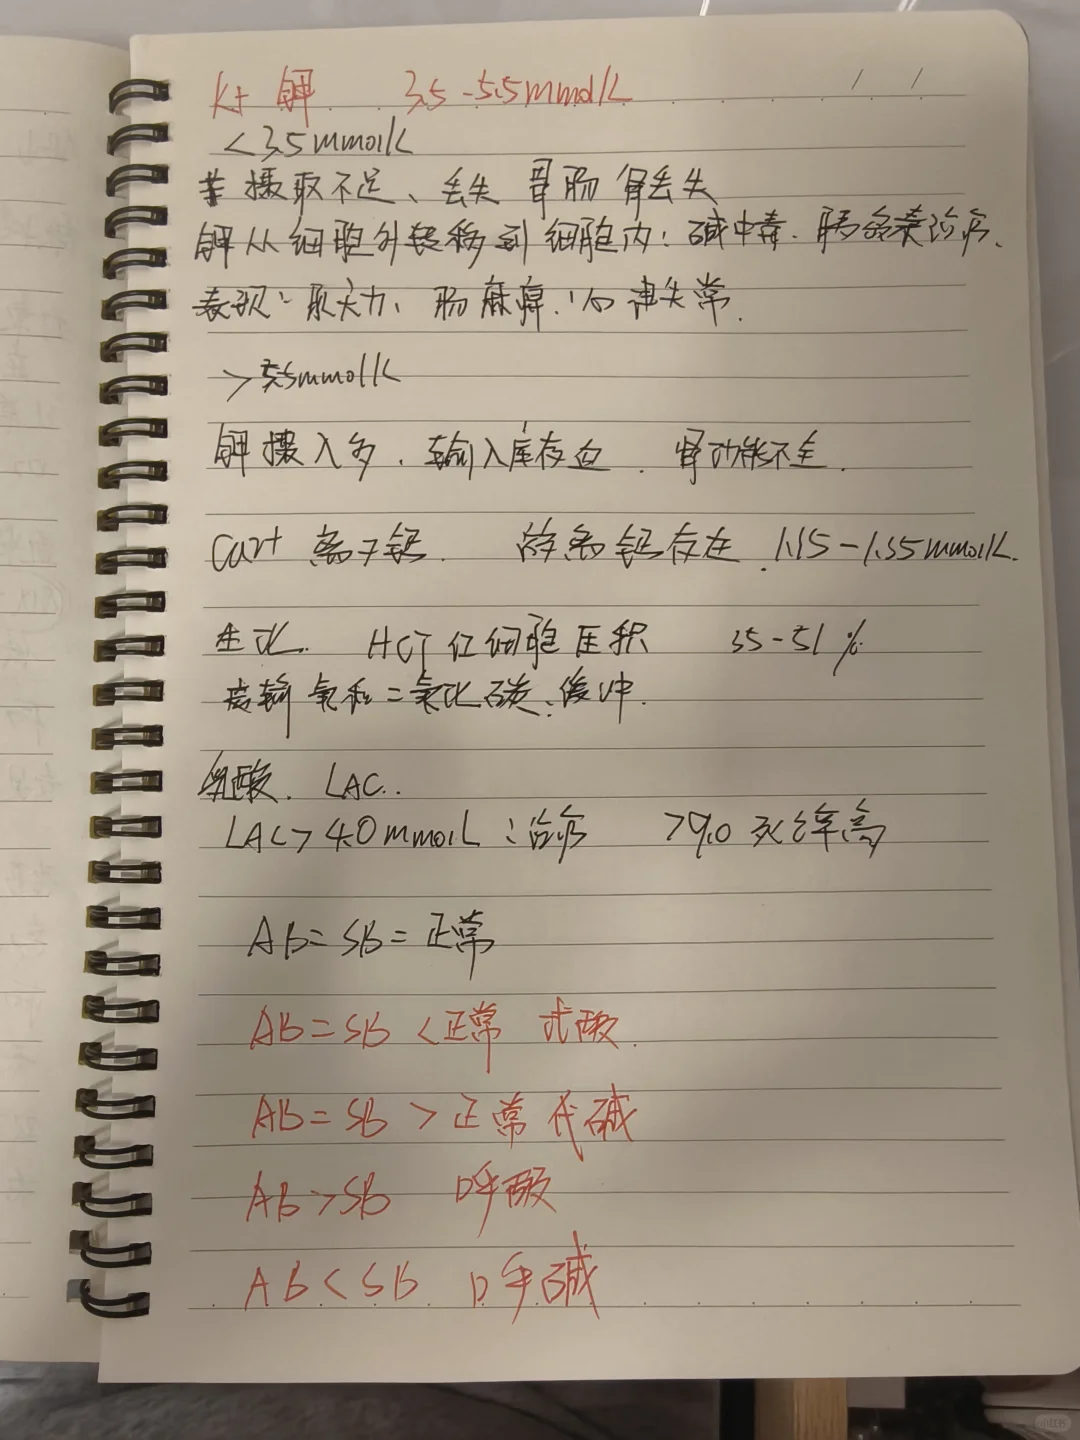 K+ 钾 3.5-5.5mmol/L
<3.5mmol/L
摄取不足、丢失 胃肠 肾丢失
钾从细胞外转移到细胞内:碱中毒.胰岛素治疗.
表现:肌无力、肠麻痹.心律失常.
>5.5mmol/L
钾摄入多.输入库存血.肾功能不全.
Ca2+ 离子钙. 游离钙存在.1.15-1.35mmol/L.
生化. HCT 红细胞压积 35-51%.
运输氧和二氧化碳.缓冲.
乳酸. LAC..
LAC>4.0mmol/L:治疗 >9.0死亡率高
AB=SB=正常
AB=SB<正常 代酸.
AB=SB>正常 代碱
AB>SB 呼酸
AB<SB 呼碱
小红书